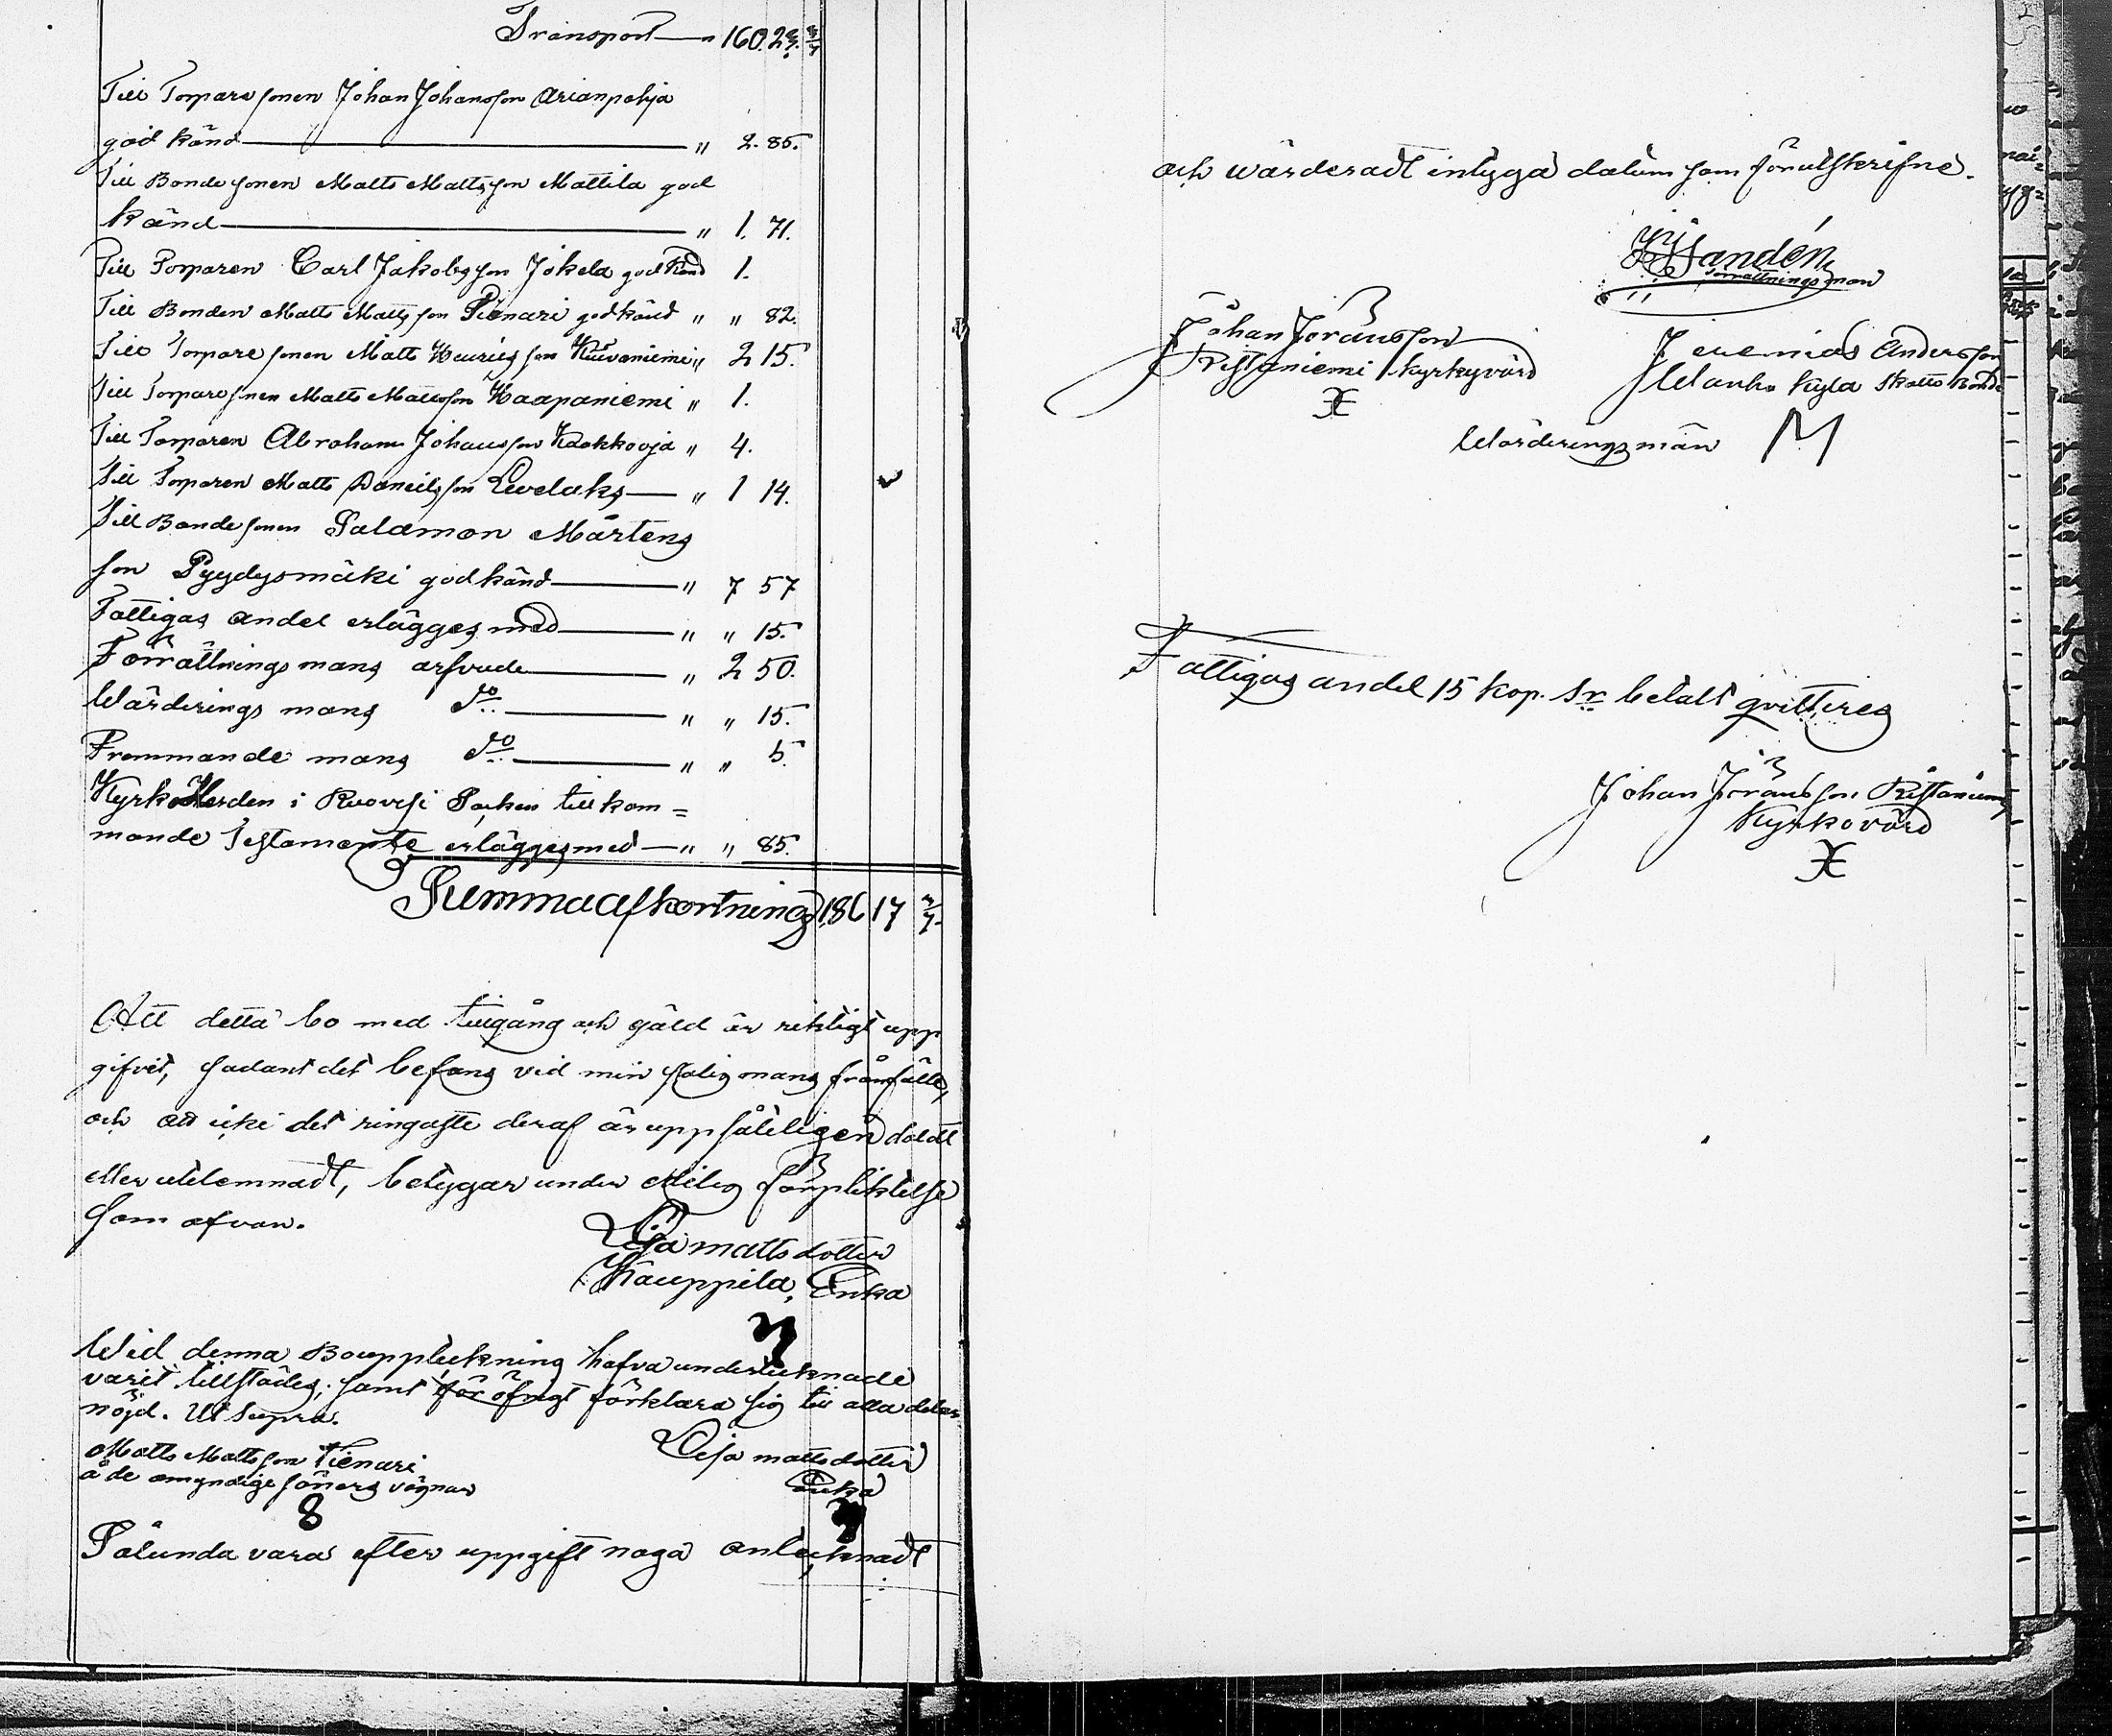 Transport — " 160. 28. 3/7
Till Torpare sonen Johan Johansson Arianpohja
god känd — " 2. 85.
Till Bonde sonen Matts Mattsson Mattila god
känd — " 1. 71.
Till Torparen Carl Jakobsson Jokela god känd 1.
Till Bonden Matts Mattsson Tienari godkänd " " 82.
Till Torpare sonen Matts Henricsson Kuivaniemi " 2 15.
Till Torpare sonen Matts Mattsson Haapaniemi " 1.
Till Torparen Abraham Johansson Kaakkooja " 4.
Till Torparen Matts Danielsson Levelaks — " 1 14.
Till Bonde sonen Salamon Mårtens
son Pyydysmäki godkänd — " 7 57
Fattigas andel erlägges med — " " 15.
Förrättnings mans arfvude — " 2 50.
Wärderings mans do — " " 15.
Frammande mans do — " " 5.
Kyrko Herden i Ruovesi Socken till kom=
mande Testamente erlägges med — " " 85.
Summa afkortning 186 17 3/7.
Att detta bo med tillgång och gäld är riktigt upp
gifvet, sadant det befans vid min salig mans frånfälle,
och att icke det ringaste deraf är uppsåteligen doldt
eller utelemnadt, betygar under edelig förpliktelse
som ofvan.
Lisa matts dotter
Kauppila, Enka
Wid denna Boupptekning hafva undertecknade
varit tillstädes, samt för öfrigt förklara sig till alla delar
nöjd. Ut Supra.
Matts Mattsson Tienari
å de omyndige söners vägnar
8
Lisa matts dotter
Enka
Sålunda vara efter uppgift noga antecknadt
och wärderadt intyga datum som förutskrifne.
Sandén
förrättningsman
Johan Jöransson
Ristaniemi kyrkyvärd
Jeremias Andersson
kyla Skatte Bonde
Wärderingsmän M
Fattigas andel 15 kop. Sr betalt qvitteres
Johan Jöransson Ristaniemi
Kyrkovärd